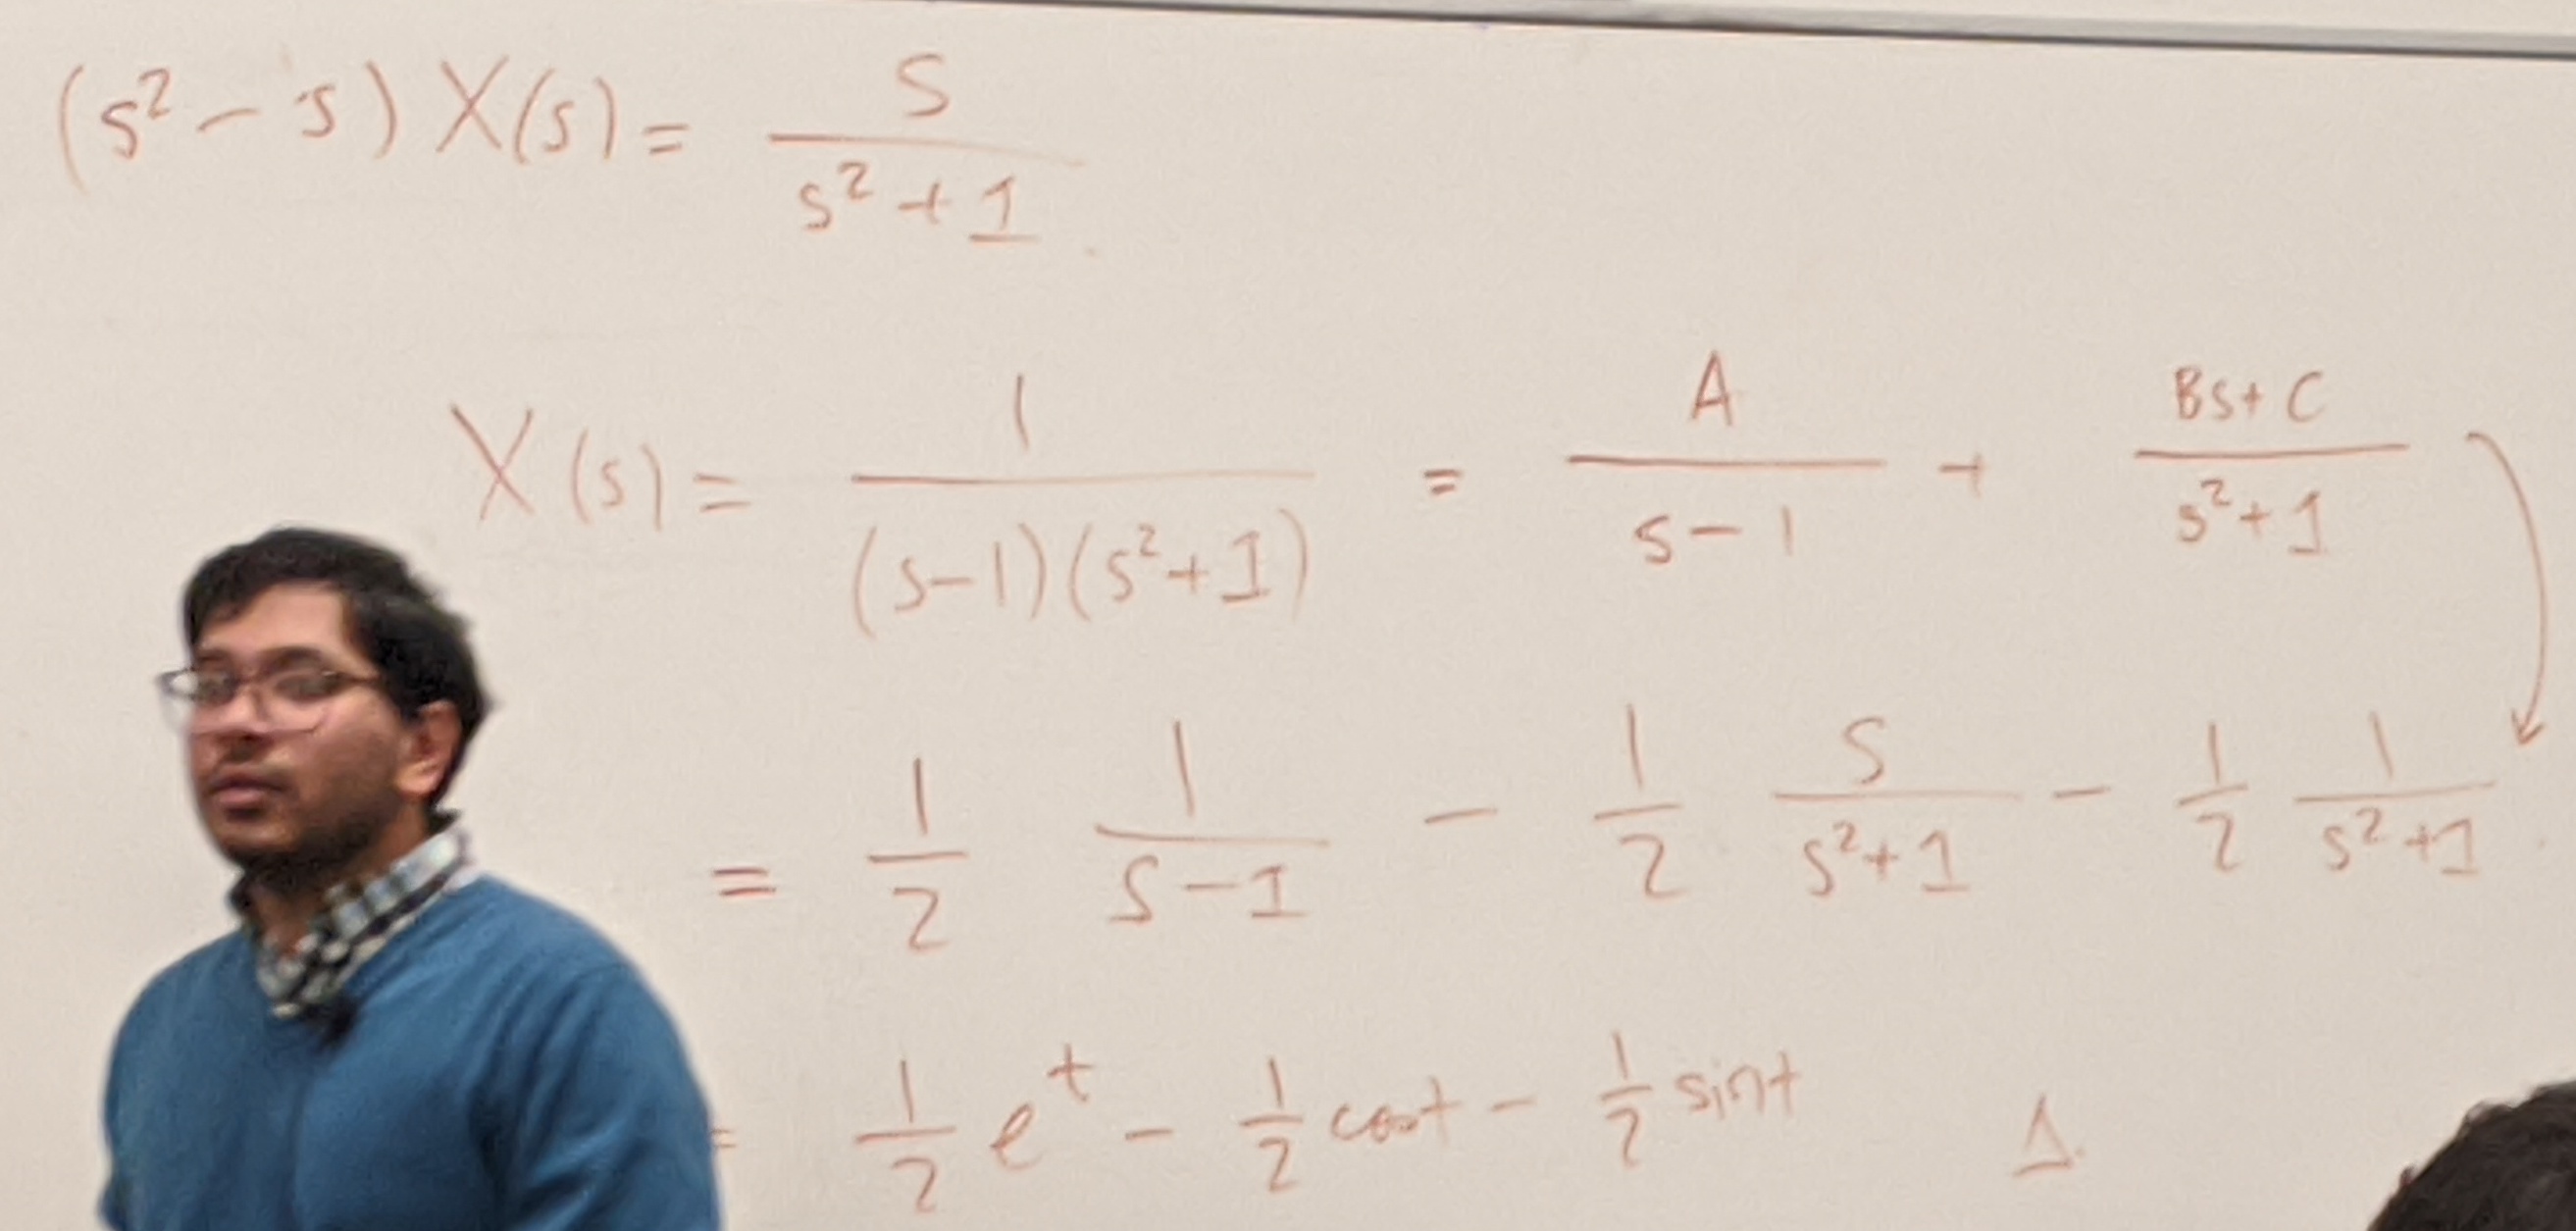 (s² - s) X(s) = s / (s² + 1)
X(s) = 1 / ((s-1)(s²+1)) = A / (s-1) + (Bs + C) / (s²+1)
= 1/2 1/(s-1) - 1/2 s/(s²+1) - 1/2 1/(s²+1)
= 1/2 e^t - 1/2 cost - 1/2 sint Δ